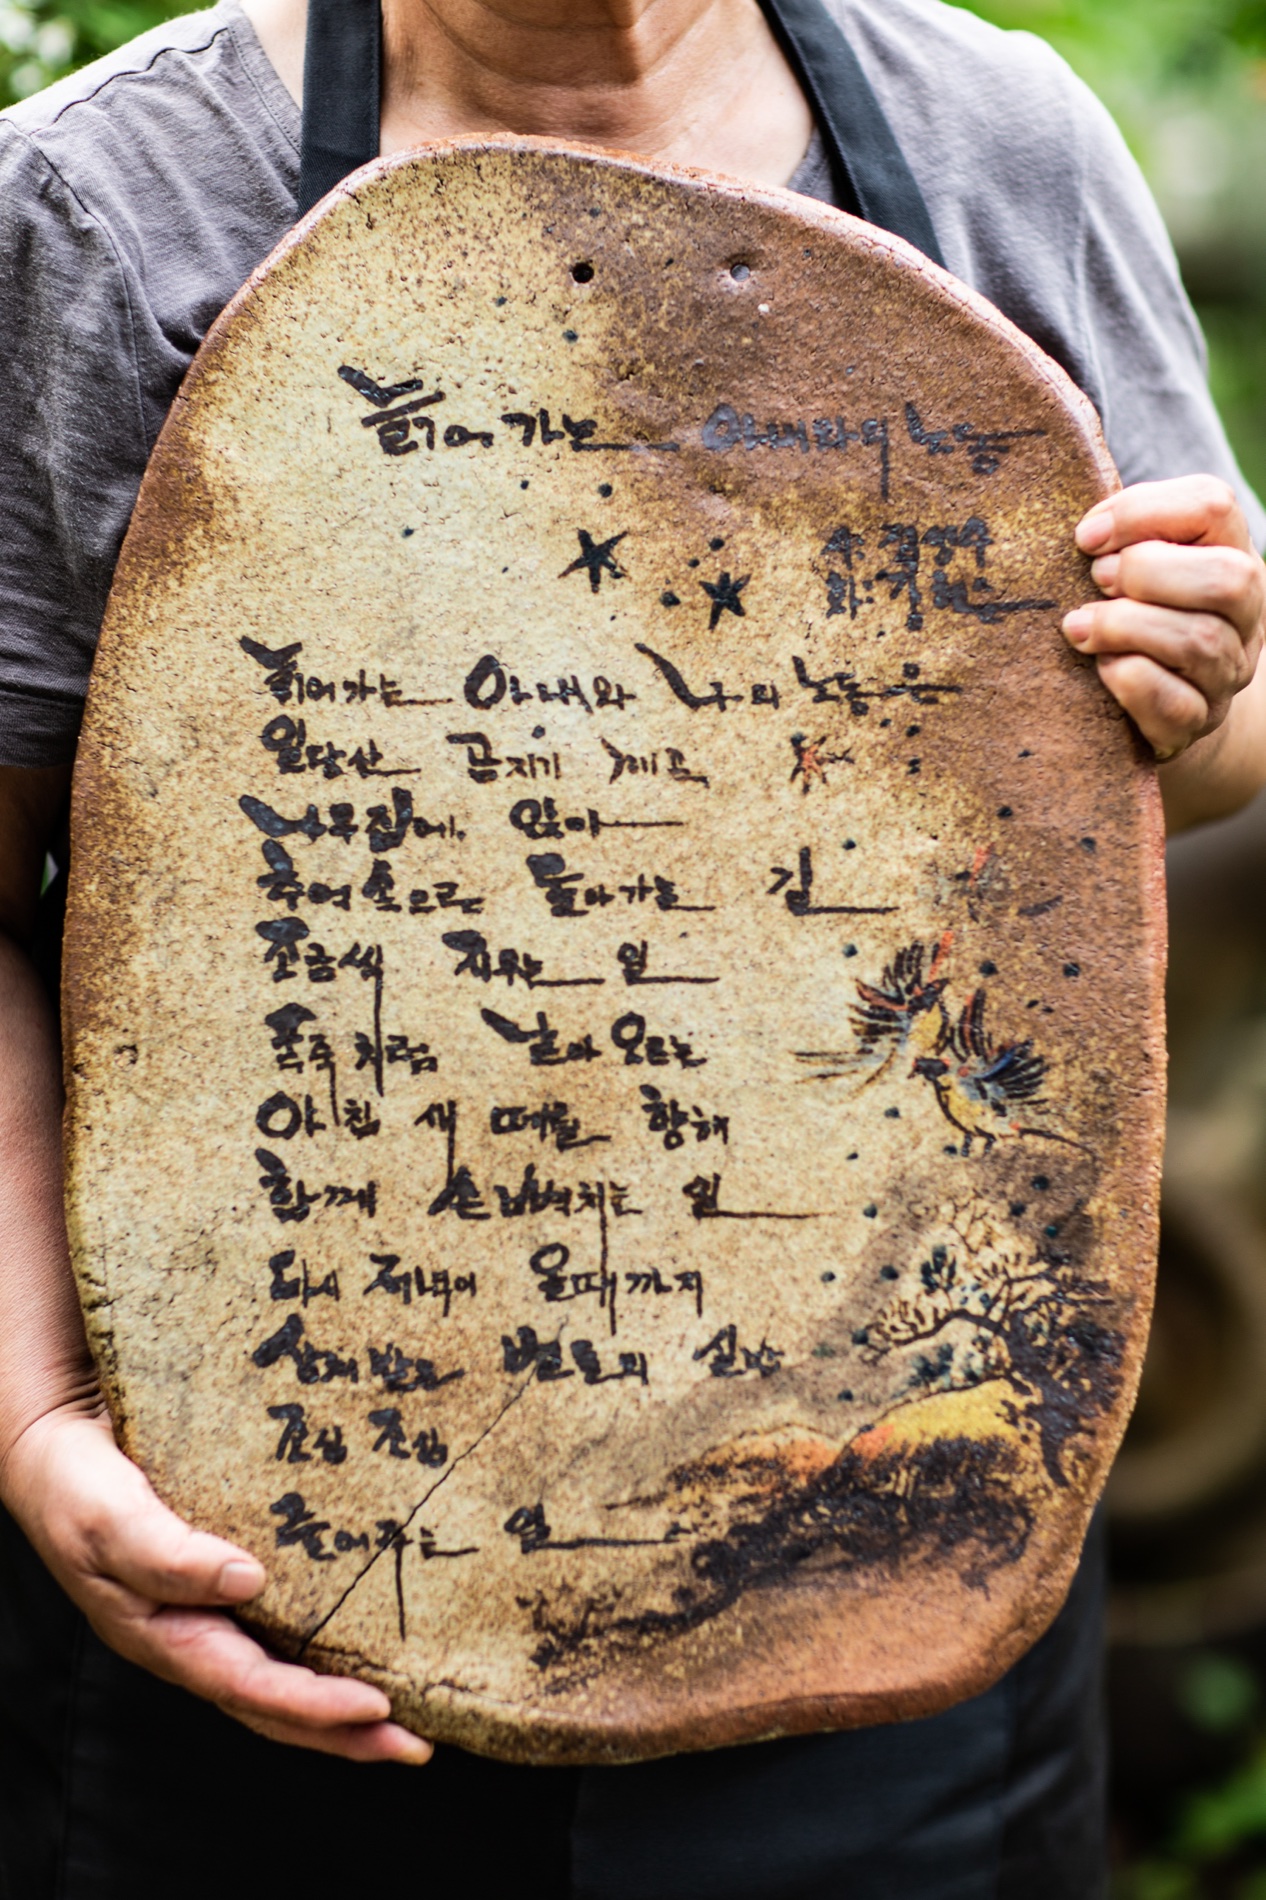 늙어가는 아내와의 노동
늙어가는 아내와 나의 노동은
일당산 금지기 개고
나무집에 앉아
추억 속으로 돌아가는 길
조금씩 지우는 일
폭죽처럼 날아 오르는
아친 새 떼를 향해
함께 손뼉치는 일
다시 저녁이 올때까지
상처받은 변도의 신발
조심 조심
늘어가는 일